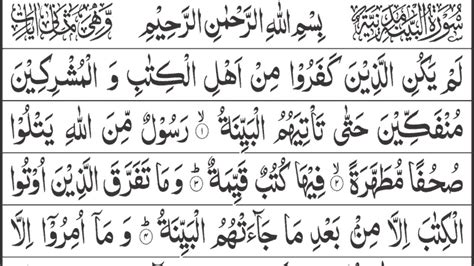 سُوْرَةُ الْبَيِّنَةِ مَدَنِيَّةٌ بِسْمِ اللهِ الرَّحْمٰنِ الرَّحِيْمِ وَّهِيَ ثَمَانُ اٰيَاتٍ
لَمْ يَكُنِ الَّذِيْنَ كَفَرُوْا مِنْ اَهْلِ الْكِتٰبِ وَ الْمُشْرِكِيْنَ
مُنْفَكِّيْنَ حَتّٰى تَاْتِيَهُمُ الْبَيِّنَةُ ۙ﴿۱﴾ رَسُوْلٌ مِّنَ اللهِ يَتْلُوْا
صُحُفًا مُّطَهَّرَةً ۙ﴿۲﴾ فِيْهَا كُتُبٌ قَيِّمَةٌ ؕ﴿۳﴾ وَ مَا تَفَرَّقَ الَّذِيْنَ اُوْتُوا
الْكِتٰبَ اِلَّا مِنْۢ بَعْدِ مَا جَآءَتْهُمُ الْبَيِّنَةُ ؕ﴿۴﴾ وَ مَاۤ اُمِرُوْۤا اِلَّا